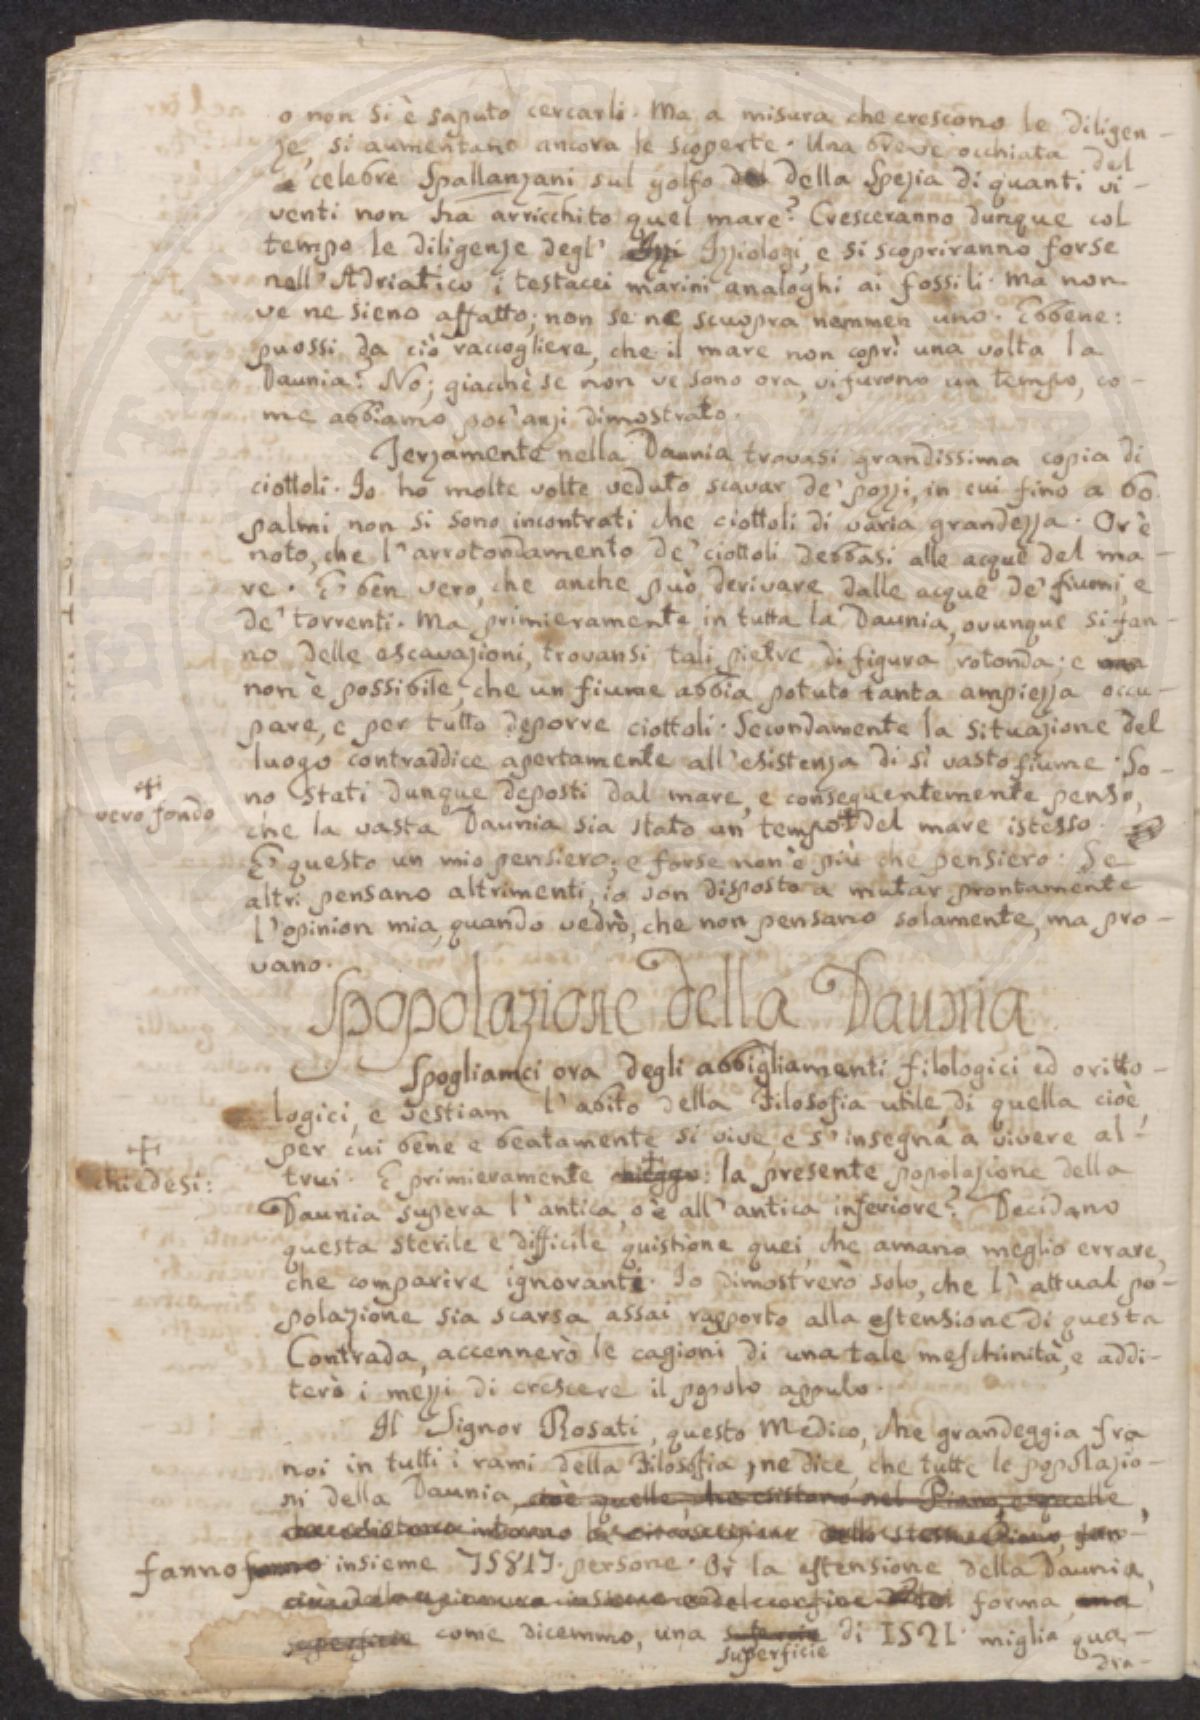 o non si è saputo cercarli. Ma a misura che crescono le diligen-
ze, si aumentano ancora le scoperte. Una breve occhiata del
celebre Spallanzani sul golfo della Spezia di quanti vi-
venti non ha arricchito quel mare? Cresceranno dunque col
tempo le diligenze degl' Izziologi, e si scopriranno forse
nell'Adriatico i testacei marini analoghi ai fossili. Ma non
ve ne sieno affatto; non se ne scuopra nemmen uno. Ebbene:
puossi da ciò raccogliere, che il mare non coprì una volta la
Daunia? No; giacchè se non ve sono ora, vi furono un tempo, co-
me abbiamo poc'anzi dimostrato.
Terzamente nella Daunia trovasi grandissima copia di
ciottoli. Io ho molte volte veduto scavar de' pozzi, in cui fino a 60
palmi non si sono incontrati che ciottoli di varia grandezza. Or è
noto, che l'arrotondamento de' ciottoli debbasi alle acque del ma-
re. E' ben vero, che anche può derivare dalle acque de' fiumi, e
de' torrenti. Ma primieramente in tutta la Daunia, ovunque si fan-
no delle escavazioni, trovansi tali pietre di figura rotonda; e
non è possibile, che un fiume abbia potuto tanta ampiezza occu-
pare, e per tutto deporre ciottoli. Secondamente la situazione del
luogo contraddice apertamente all'esistenza di sì vasto fiume. So-
no stati dunque deposti dal mare, e conseguentemente penso,
vero fondo
che la vasta Daunia sia stato un tempo + del mare istesso.
E' questo un mio pensiero; e forse non è più che pensiero. Se
altri pensano altrimenti, io son disposto a mutar prontamente
l'opinion mia, quando vedrò, che non pensano solamente, ma pro-
vano.
Spopolazione della Daunia
Spogliamci ora degli abbigliamenti filologici ed oritto-
logici, e vestiam l'abito della Filosofia utile, di quella cioè,
per cui bene e beatamente si vive, e s'insegna a vivere al-
+
chiedesi:
trui. E primieramente + la presente popolazione della
Daunia supera l'antica, o è all'antica inferiore? Decidano
questa sterile e difficile quistione quei, che amano meglio errare,
che comparire ignoranti. Io dimostrerò solo, che l'attual po-
polazione sia scarsa assai rapporto alla estensione di questa
Contrada, accennerò le cagioni di una tale meschinità, e addi-
terò i mezzi di crescere il popolo appulo.
Il Signor Rosati, questo Medico, che grandeggia fra
noi in tutti i rami della Filosofia, ne dice, che tutte le popolazio-
ni della Daunia, cioè quelle, che esistono nel Piano, e quelle,
fanno insieme 75817. persone. Or la estensione della Daunia,
forma
superficie come dicemmo, una superficie di 1521. miglia qua-
dra-